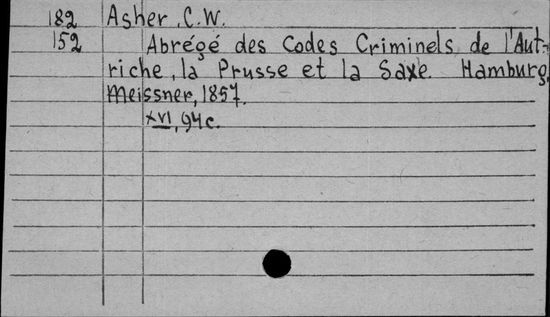 182 Asher, C.W.
152 Abrégé des Codes Criminels de l'Aut-
riche, la Prusse et la Saxe. Hamburg,
Meissner, 1857.
XVI, 94 c.